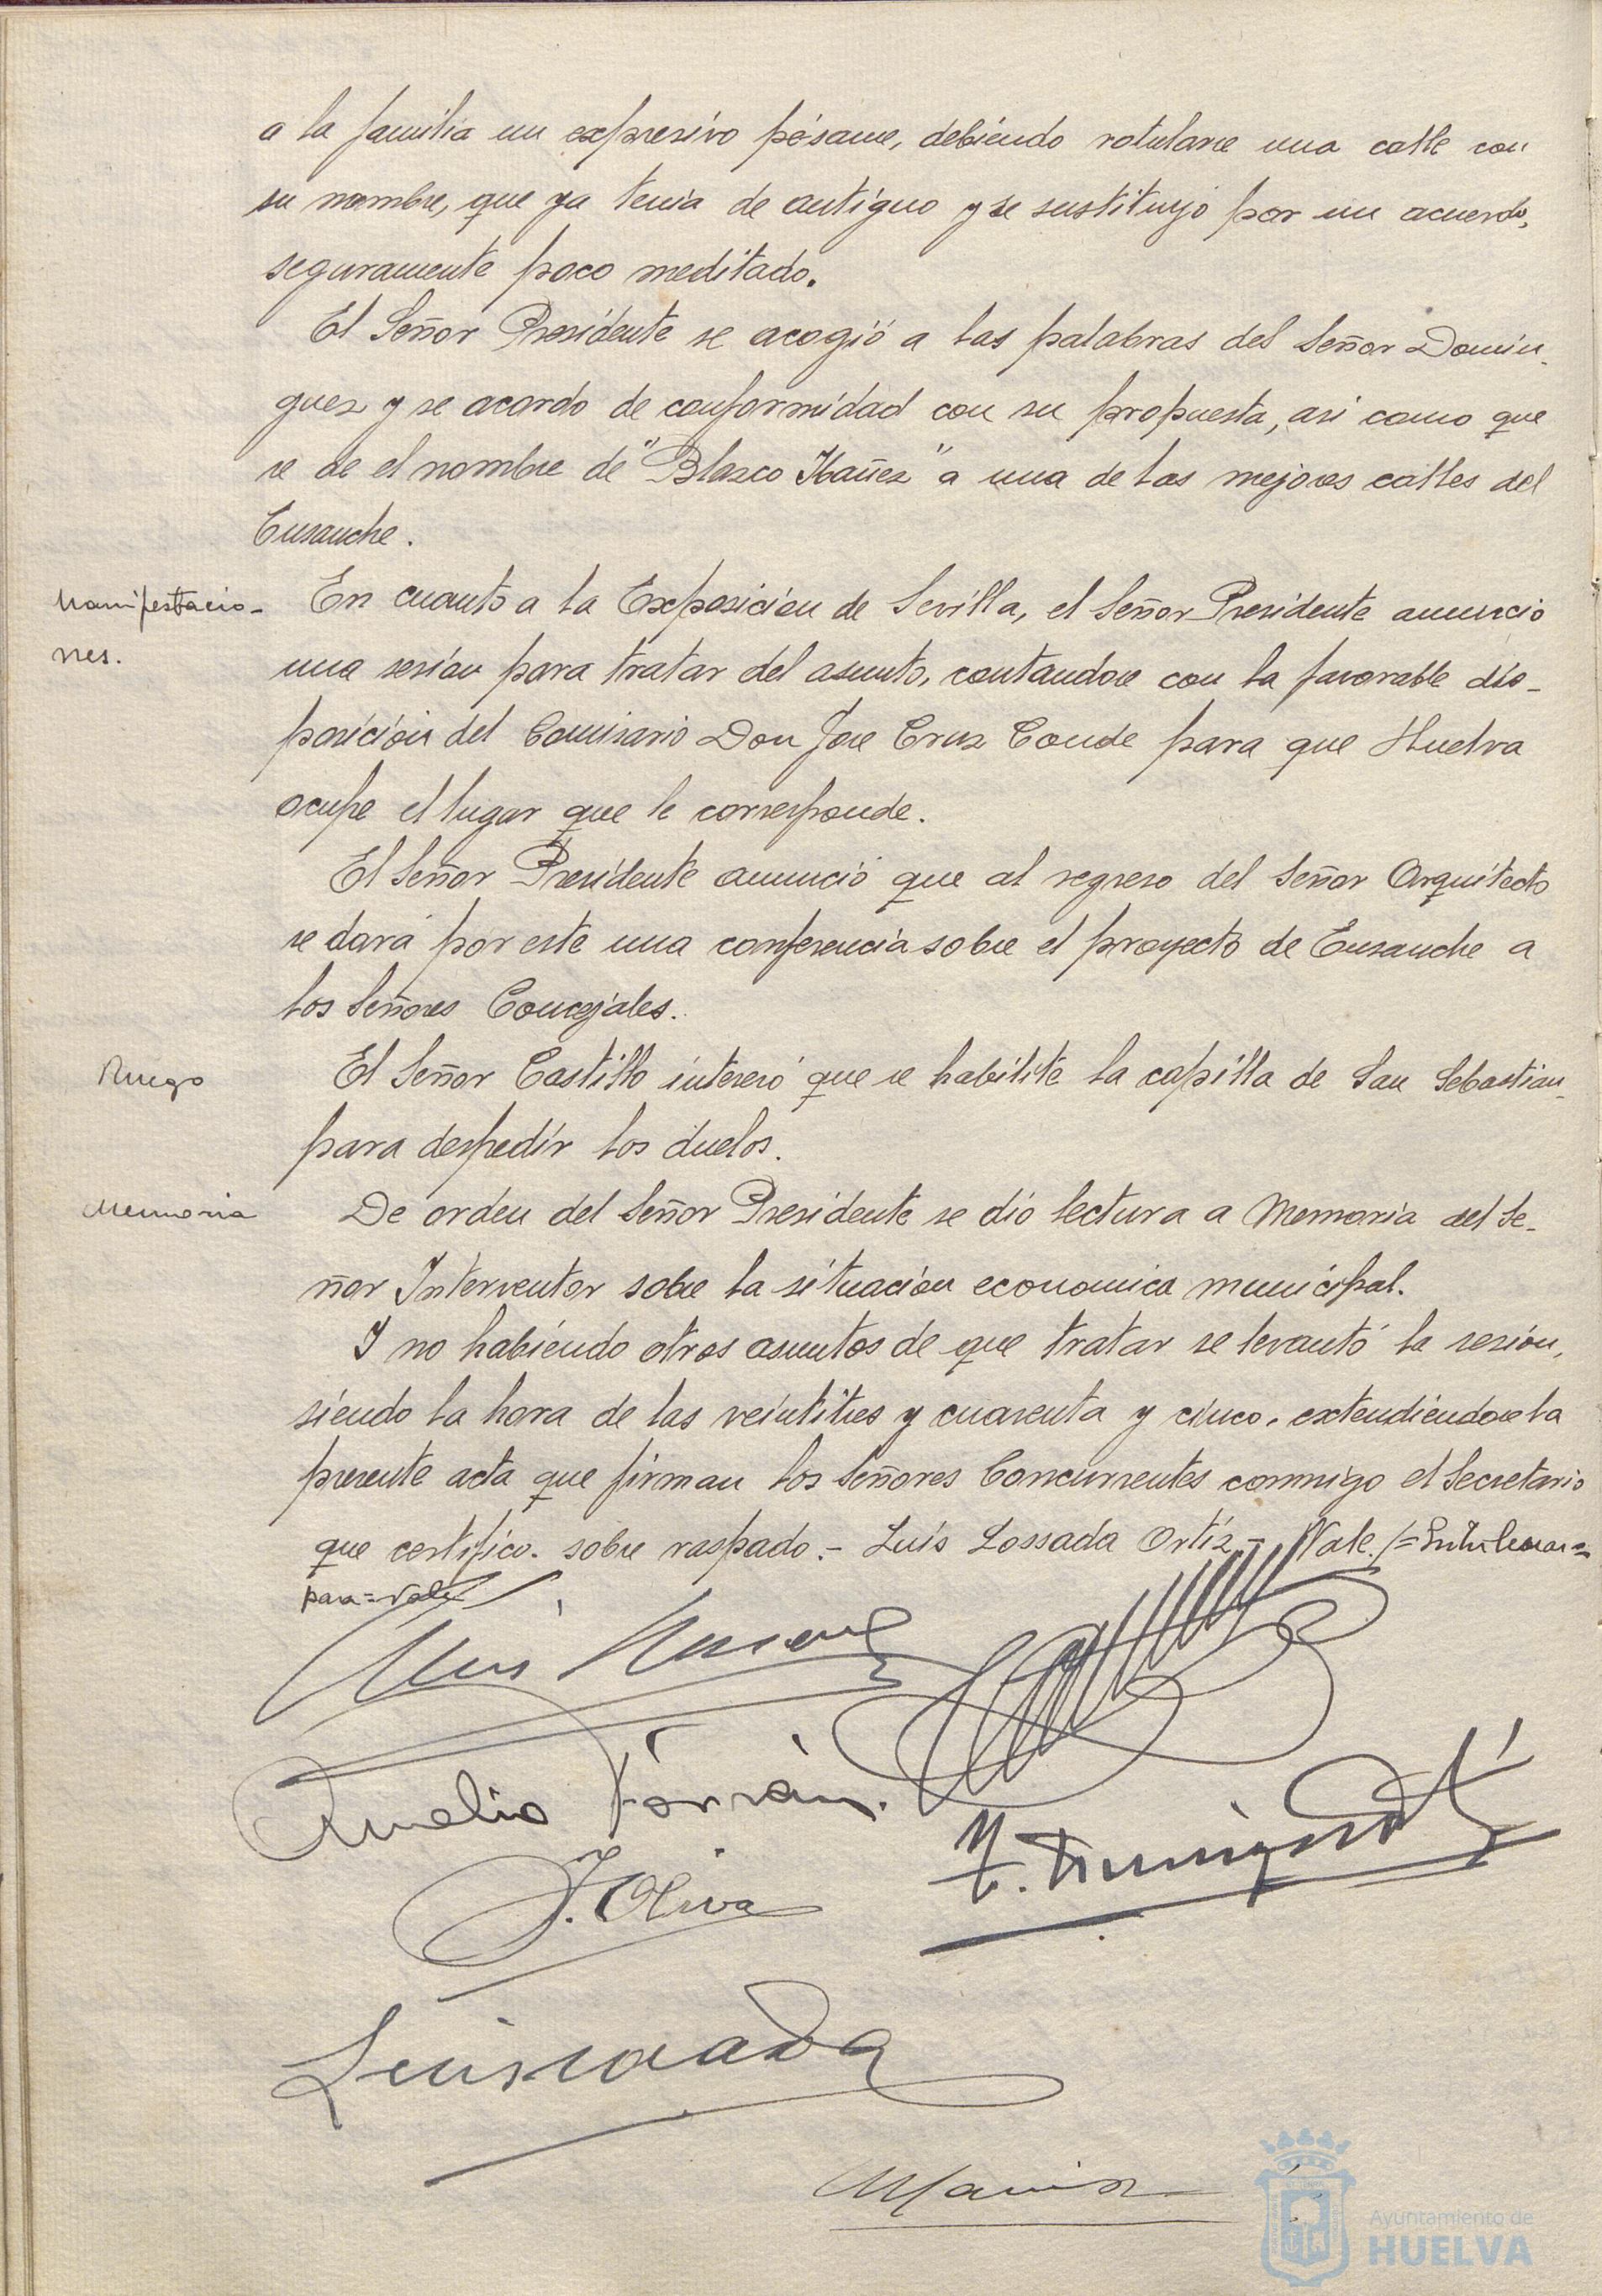 a la familia un expresivo pésame, debiendo rotularse una calle con
su nombre, que ya tenia de antiguo y se sustituyó por un acuerdo,
seguramente poco meditado.
El Señor Presidente se acogió a las palabras del Señor Domin-
guez y se acordo de conformidad con su propuesta, asi como que
se de el nombre de "Blasco Ibañez" a una de las mejores calles del
Ensanche.
Manifestacio-
nes.
En cuanto a la Exposición de Sevilla, el Señor Presidente anunció
una sesión para tratar del asunto, contandose con la favorable dis-
posición del Comisario Don Jose Cruz Conde para que Huelva
ocupe el lugar que le corresponde.
El Señor Presidente anunció que al regreso del Señor Arquitecto
se dará por este una conferencia sobre el proyecto de Ensanche a
los Señores Concejales.
Ruego
El Señor Castillo interesó que se habilite la capilla de San Sebastian
para despedir los duelos.
Memoria
De orden del Señor Presidente se dió lectura a Memoria del Se-
ñor Interventor sobre la situación economica municipal.
Y no habiendo otros asuntos de que tratar se levantó la sesión,
siendo la hora de las veintitres y cuarenta y cinco, extendiendose la
presente acta que firman los Señores Concurrentes conmigo el Secretario
que certifico. sobre raspado.- Luis Lossada Ortiz - Vale.
para = Vale
Amelio Terrán.
J. Oliva
Ayuntamiento de
HUELVA